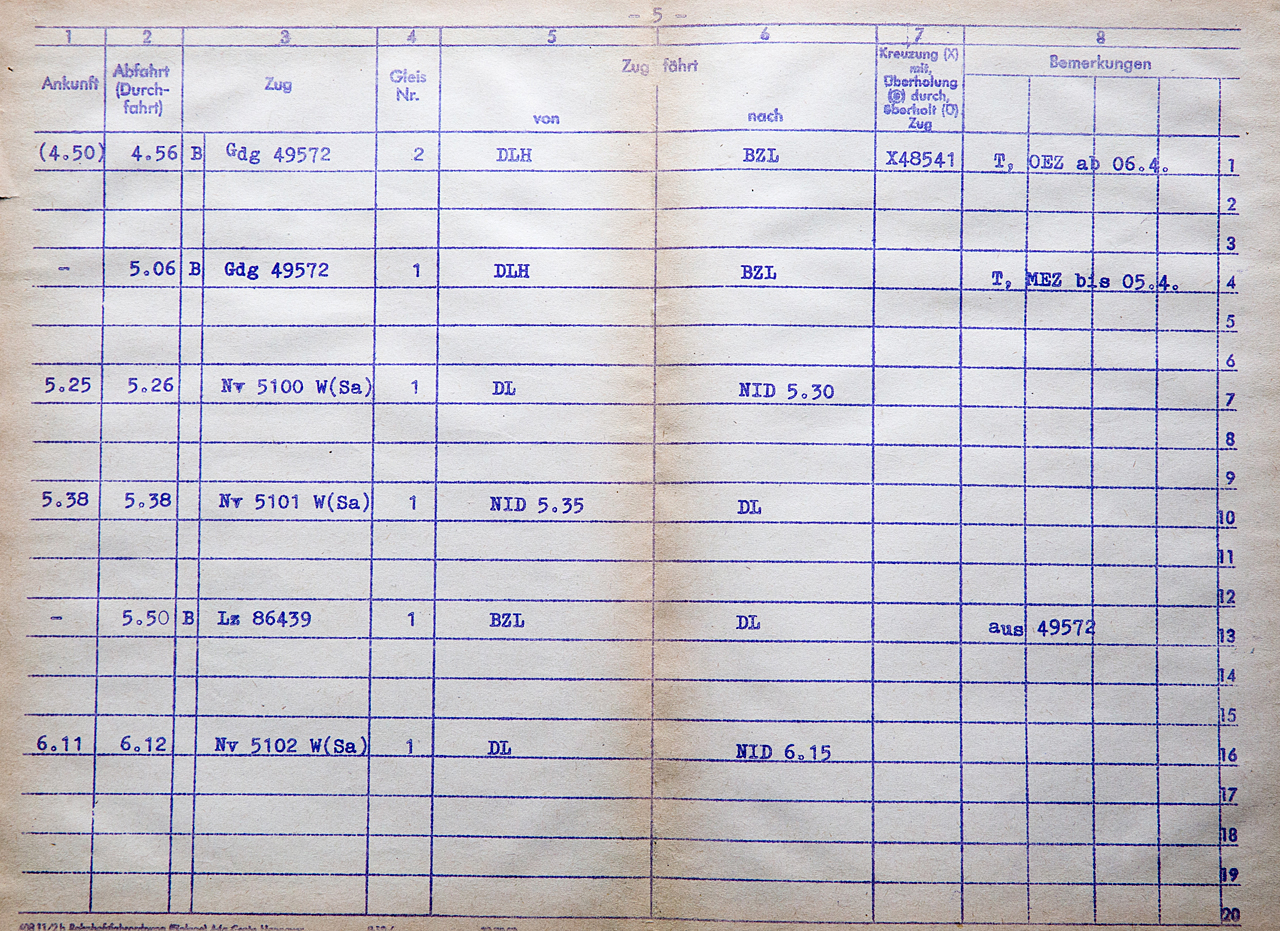 - 5 -
1 2 3 4 5 6 7 8
Ankunft Abfahrt (Durch-fahrt) Zug Gleis Nr. Zug fährt von nach Kreuzung (X) mit, Überholung durch, überholt (U) Zug Bemerkungen
(4.50) 4.56 B Gdg 49572 2 DLH BZL X48541 T, OEZ ab 06.4. 1
2
3
- 5.06 B Gdg 49572 1 DLH BZL T, MEZ bis 05.4. 4
5
6
5.25 5.26 Nv 5100 W(Sa) 1 DL NID 5.30 7
8
9
5.38 5.38 Nv 5101 W(Sa) 1 NID 5.35 DL 10
11
12
- 5.50 B Lz 86439 1 BZL DL aus 49572 13
14
15
6.11 6.12 Nv 5102 W(Sa) 1 DL NID 6.15 16
17
18
19
20